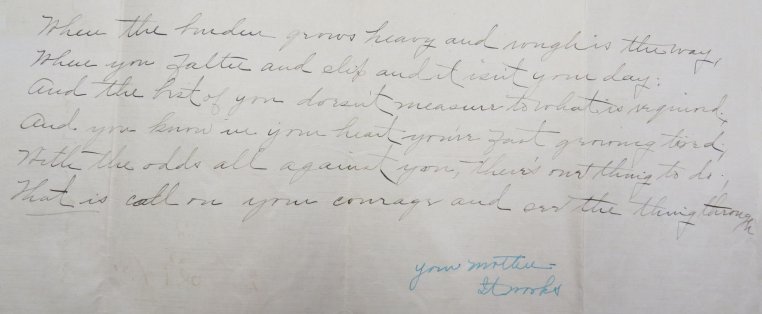 When the burden grows heavy and rough is the way,
When you falter and slip and it isn't your day;
And the best of you doesn't measure to what is required,
And you know in your heart you're fast growing tired,
With the odds all against you, there's one thing to do;
That is call on your courage and see the thing through
your mother
It works